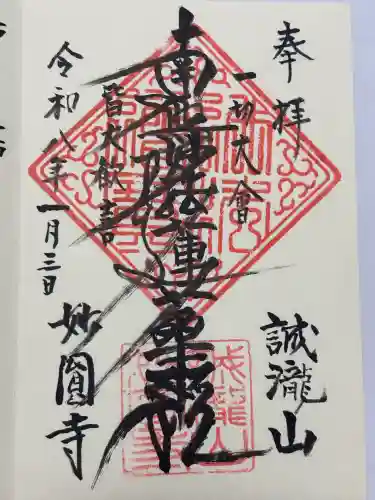 奉拝
誠瀧山
一切大會
南無妙法蓮華経
皆大歓喜
令和八年一月三日
妙圓寺